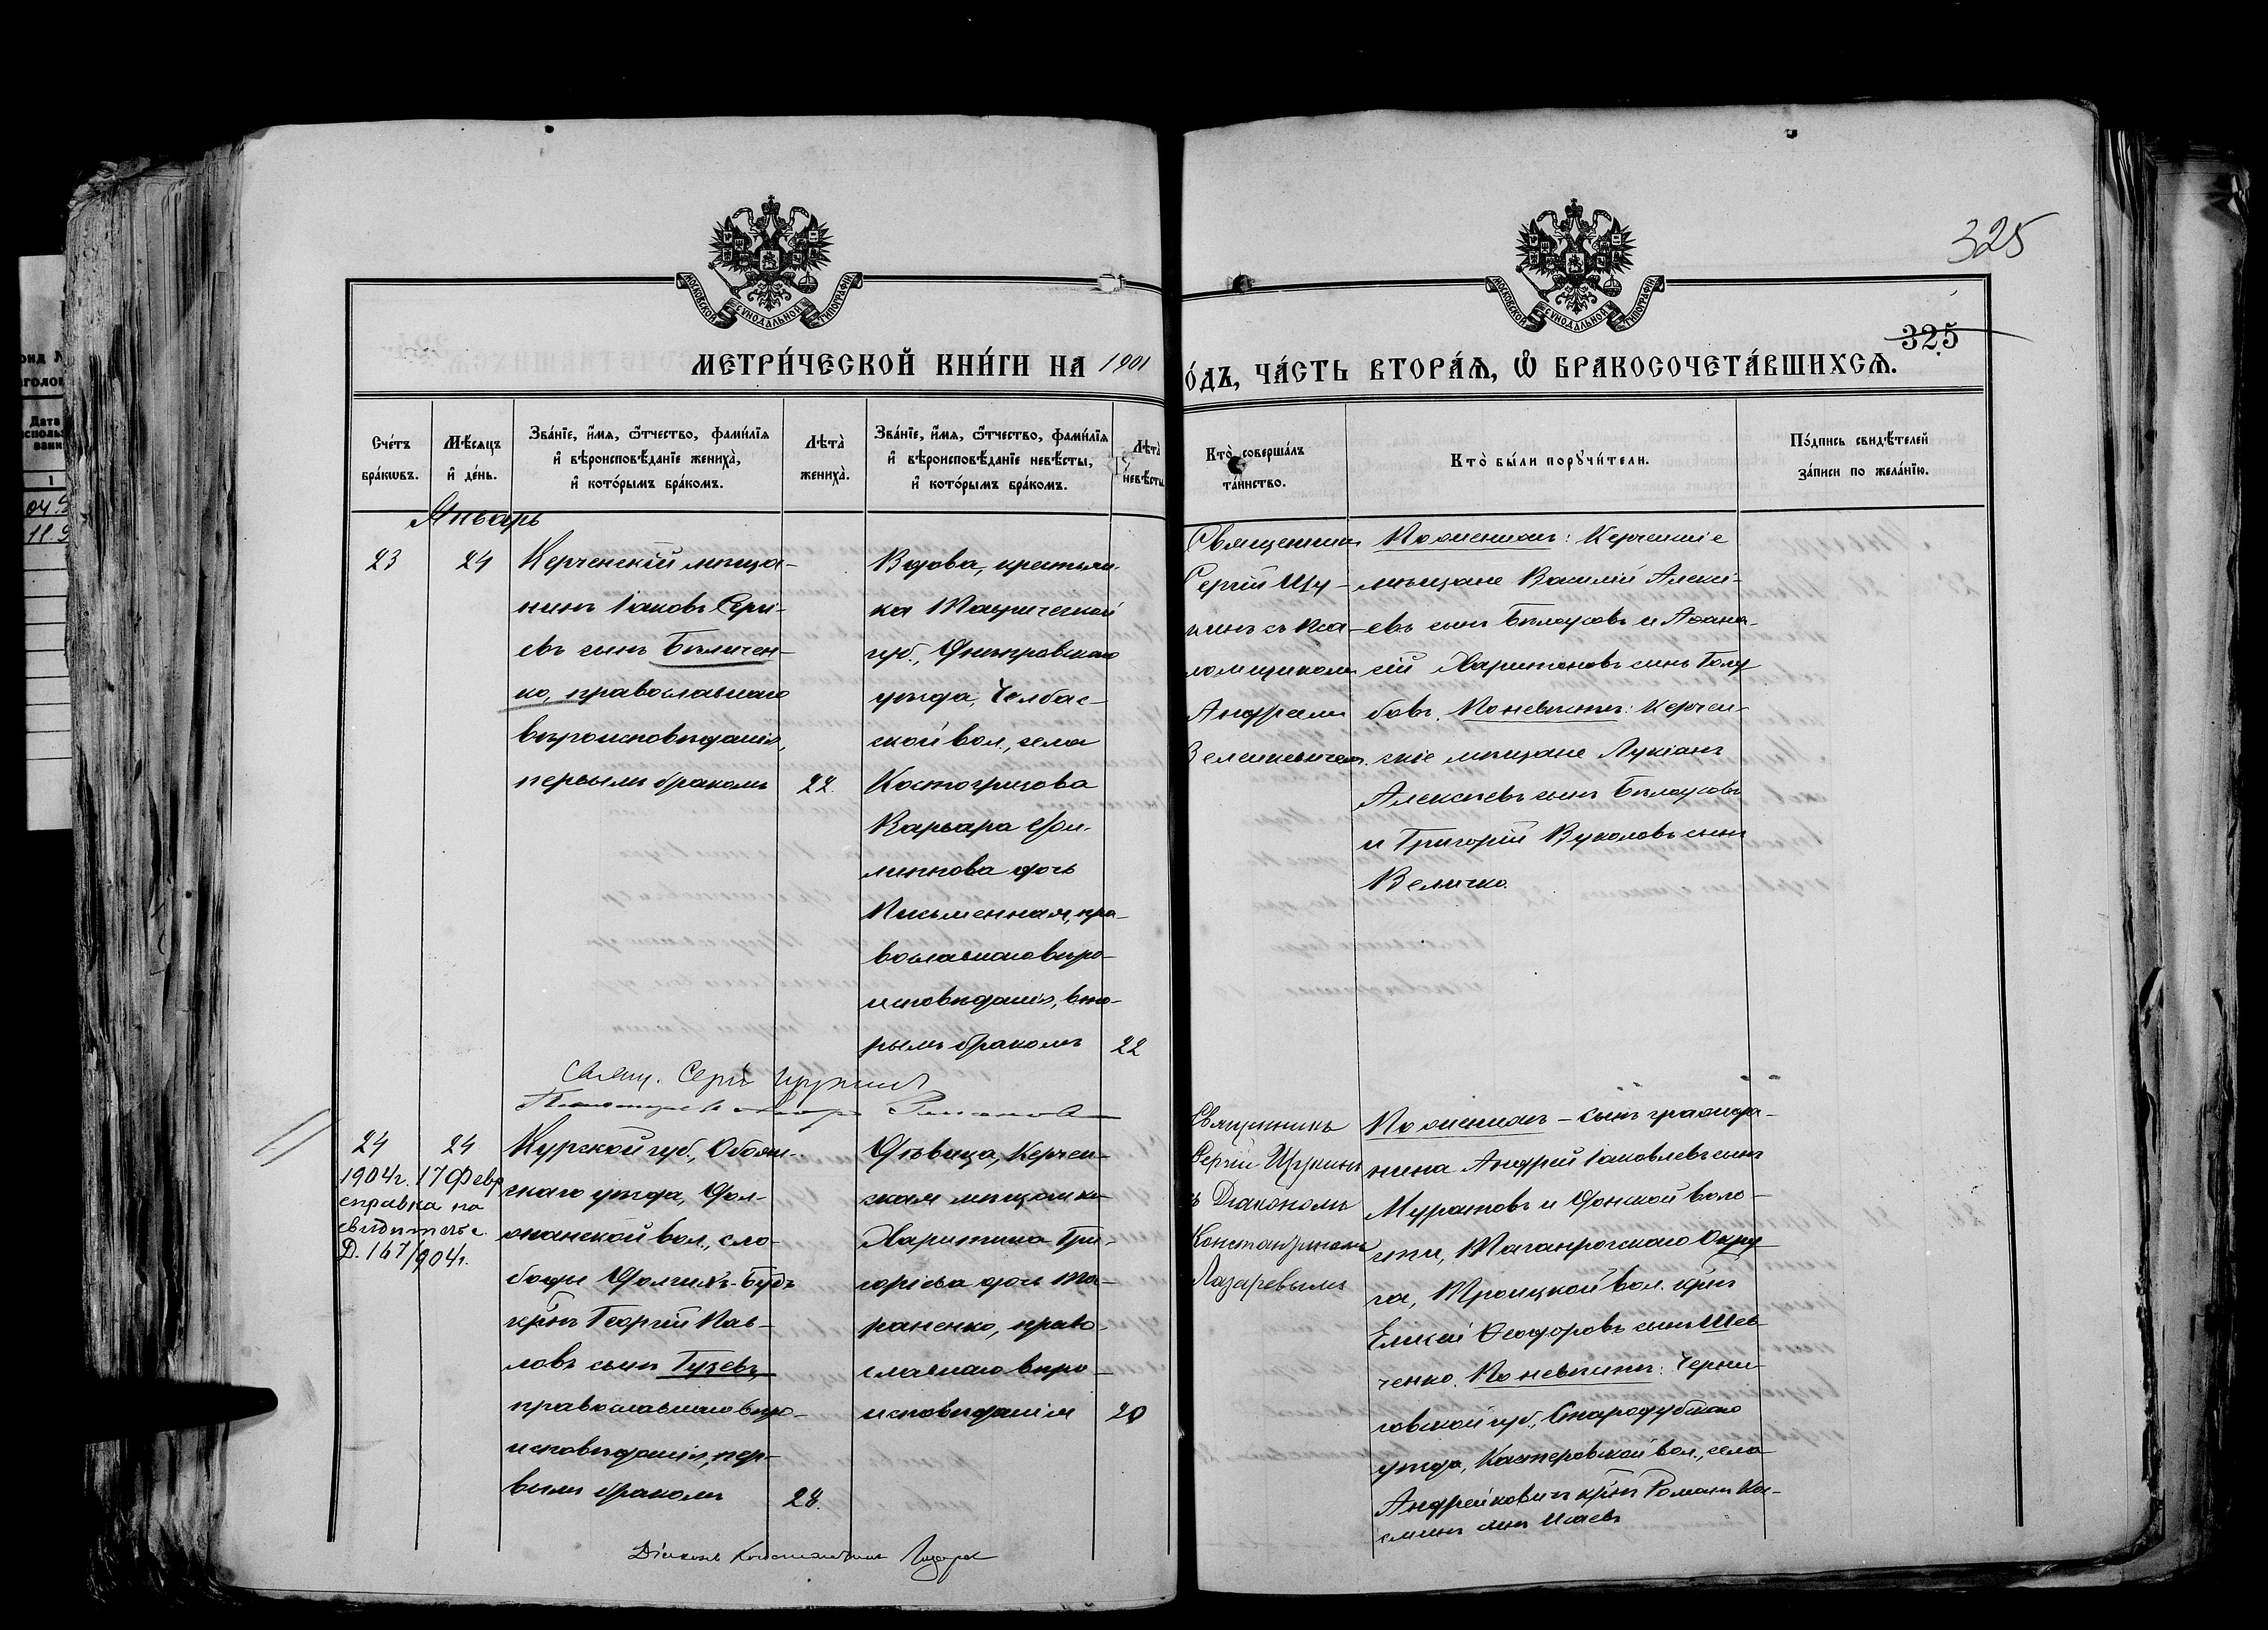 325
325
МОСКОВСКОЙ СѴНОДАЛЬНОЙ ТИПОГРАФІИ
МОСКОВСКОЙ СѴНОДАЛЬНОЙ ТИПОГРАФІИ
МЕТРИ́ЧЕСКОЙ КНИ́ГИ НА 1901
О́ДЪ, ЧА́СТЬ ВТОРА́Я, Ѡ҆ БРАКОСОЧЕТА́ВШИХСѦ.
Сче́тъ бра́кѡвъ.
Мѣ́сѧцъ и҆ де́нь.
Зва́нїе, и҆́мѧ, ѻ҆́тчество, фами́лїѧ и҆ вѣроисповѣ́данїе жениха̀, и҆ кото́рымъ бра́комъ.
Лѣта̀ жениха̀.
Зва́нїе, и҆́мѧ, ѻ҆́тчество, фами́лїѧ и҆ вѣроисповѣ́данїе невѣ́сты, и҆ кото́рымъ бра́комъ.
Лѣта̀ невѣ́сты
Кто̀ соверша́лъ та́инство.
Кто̀ бы́ли порꙋчи́тели.
По́дпись свидѣ́телей за́писи по жела́нїю.
Январь
23
24
Керченскій мѣща-
нинъ Іаковъ Серг-
евъ сынъ Бѣличен-
ко, православнаго
вѣроисповѣданія,
первымъ бракомъ
22.
Вдова, крестьян-
ка Таврической
губ., Днѣпровскаго
уѣзда, Челбас-
ской вол., села
Костогрызова
Варвара Фи-
липпова дочь
Письменная, пра-
вославнаго вѣро-
исповѣданія, вто-
рымъ бракомъ
22
Священник
Сергій Щу-
кинъ съ Пса-
ломщикомъ
Андреем
Зелинкевичем.
По женихѣ: Керченскіе
мѣщане Василій Алексѣ-
евъ сынъ Бѣлоусовъ и Аѳана-
сій Харитоновъ сынъ Голу
бовъ. По невѣстѣ: Керчен-
скіе мѣщане Лукіанъ
Алексѣевъ сынъ Бѣлоусовъ
и Григорій Вуколовъ сынъ
Величко.
Свящ. Сергій Щукинъ
24
24
1904г. 17 Февр
справка на
свидѣтельс.
Д. 167/904г.
Курской губ., Обоян-
скаго уѣзда, Дол-
жанской вол., сло-
боды Долгихъ-Будъ
крнъ Георгій Пав-
ловъ сынъ Гузевъ,
православнаго вѣро-
исповѣданія, пер-
вымъ бракомъ
28.
Дѣвица, Керчен-
ская мѣщанка
Харитина Гри-
горіева дочь Та-
раненко, право-
славнаго вѣро-
исповѣданія
20
Священникъ
Сергій Щукинъ
съ Діакономъ
Константиномъ
Лазаревымъ
По женихѣ - сынъ гражда-
нина Андрей Іаковлевъ сынъ
Муратовъ и Донской воло-
сти, Таганрогскаго Окру
га, Троицкой вол. крнъ
Елисей Ѳеодоровъ сынъ Шев
ченко. По невѣстѣ: Черни-
говской губ., Стародубскаго
уѣзда, Костеровской вол., села
Андрейковичъ крнъ Романъ Кос-
минъ сынъ Исаевъ
Діаконъ Константинъ Лазарев